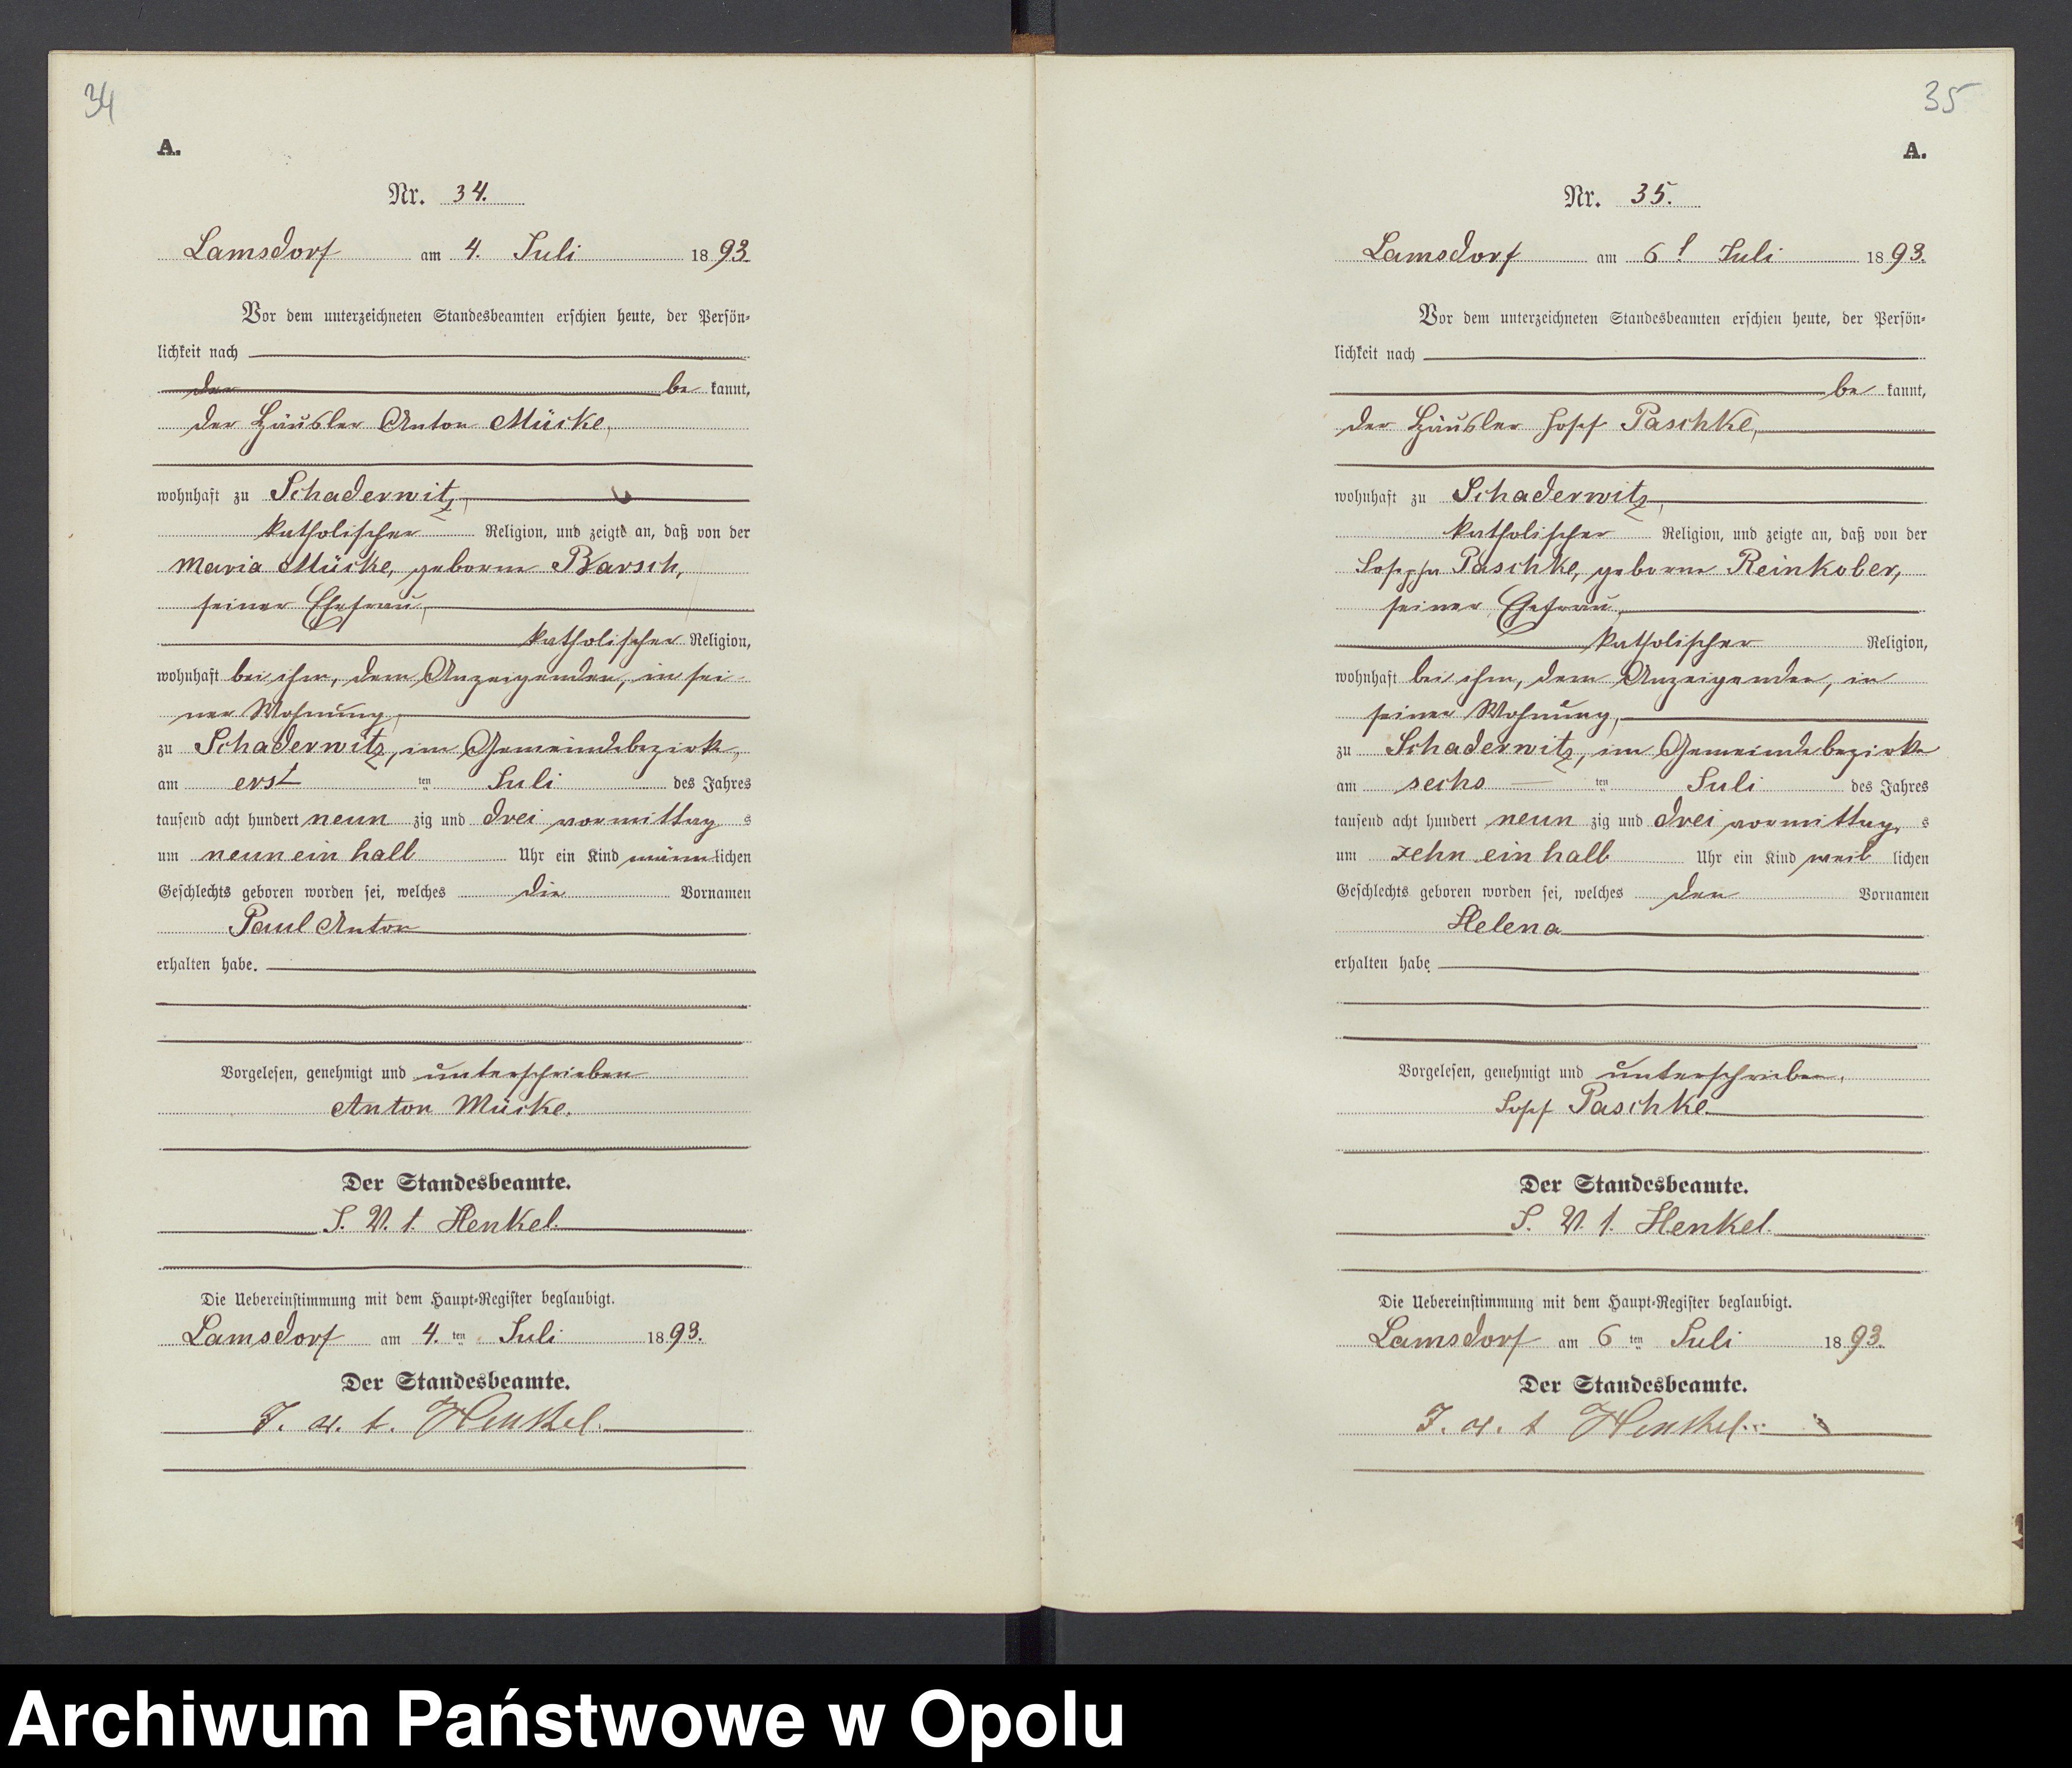 34
A.
Nr. 34.
Lamsdorf am 4. Juli 1893.
Vor dem unterzeichneten Standesbeamten erschien heute, der Persön-
lichkeit nach
der be kannt,
der Häusler Anton Mücke,
wohnhaft zu Schaderwitz,
katholischer Religion, und zeigte an, daß von der
Maria Mücke, geborne Barsch,
seiner Ehefrau,
katholischer Religion,
wohnhaft bei ihm, dem Anzeigenden, in sei-
ner Wohnung,
zu Schaderwitz, im Gemeindebezirk,
am erst ten Juli des Jahres
tausend acht hundert neun zig und drei vormittag s
um neun ein halb Uhr ein Kind männ lichen
Geschlechts geboren worden sei, welches die Vornamen
Paul Anton
erhalten habe.
Vorgelesen, genehmigt und unterschrieben
Anton Mücke.
Der Standesbeamte.
J. V. t. Henkel.
Die Uebereinstimmung mit dem Haupt-Register beglaubigt.
Lamsdorf am 4. ten Juli 1893.
Der Standesbeamte.
J. V. t. Henkel.
35
A.
Nr. 35.
Lamsdorf am 6 Juli 1893.
Vor dem unterzeichneten Standesbeamten erschien heute, der Persön-
lichkeit nach
be kannt,
der Häusler Josef Paschke,
wohnhaft zu Schaderwitz,
katholischer Religion, und zeigte an, daß von der
Josepha Paschke, geborne Reinkober,
seiner Ehefrau,
katholischer Religion,
wohnhaft bei ihm, dem Anzeigenden, in
seiner Wohnung,
zu Schaderwitz, im Gemeindebezirke
am sechs ten Juli des Jahres
tausend acht hundert neun zig und drei vormittag s
um zehn ein halb Uhr ein Kind weib lichen
Geschlechts geboren worden sei, welches den Vornamen
Helena
erhalten habe
Vorgelesen, genehmigt und unterschrieben.
Josef Paschke
Der Standesbeamte.
J. V. t. Henkel.
Die Uebereinstimmung mit dem Haupt-Register beglaubigt.
Lamsdorf am 6 ten Juli 1893.
Der Standesbeamte.
J. V. t Henkel.
Archiwum Państwowe w Opolu